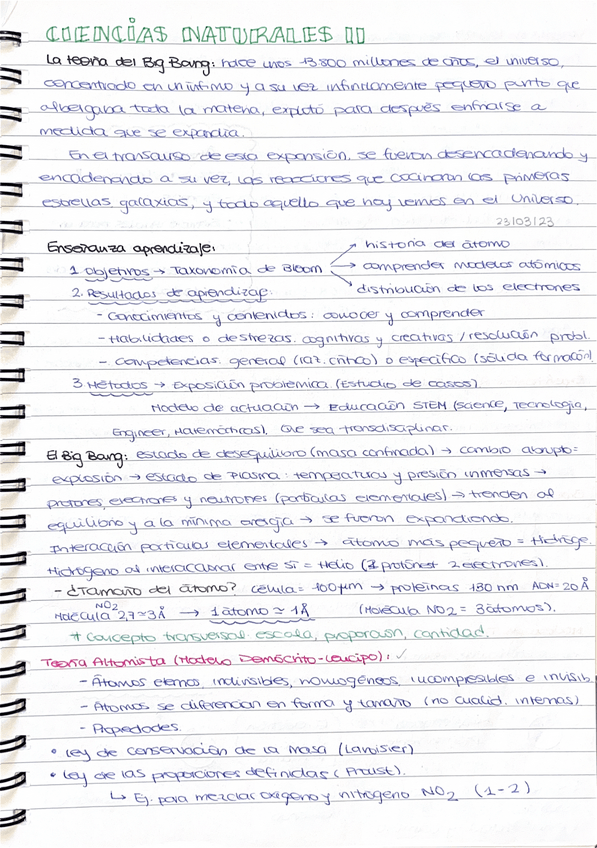 CIENCIAS NATURALES II
La teoría del Big Bang: hace unos 13 800 millones de años, el universo,
concentrado en un ínfimo y a su vez infinitamente pequeño punto que
albergaba toda la materia, explotó para después enfriarse a
medida que se expandía.
En el transcurso de esta expansión, se fueron desencadenando y
encadenando a su vez, las reacciones que cocinaron las primeras
estrellas galaxias, y todo aquello que hoy vemos en el Universo.
23/03/23
Enseñanza aprendizaje:
historia del átomo
1. Objetivos → Taxonomía de Bloom → comprender modelos atómicos
2. Resultados de aprendizaje: distribución de los electrones
- Conocimientos y contenidos: conocer y comprender
- Habilidades o destrezas: cognitivas y creativas / resolución probl.
- Competencias: general (raz. crítico) o específico (sólida formación)
3. Métodos → Exposición problémica (Estudio de casos)
Modelo de actuación → Educación STEM (Science, Tecnología,
Engineer, Matemáticas), que sea transdisciplinar.
El Big Bang: estado de desequilibro (masa confinada) → cambio abrupto =
explosión → estado de Plasma: temperaturas y presión inmensas →
protones, electrones y neutrones (partículas elementales) → tienden al
equilibrio y a la mínima energía → se fueron expandiendo.
Interacción partículas elementales → átomo más pequeño = Hidróge.
Hidrógeno al interaccionar entre sí = Helio (2 protones 2 electrones).
- ¿Tamaño del átomo? Célula = 100 μm → proteínas 130 nm ADN = 20 Å
Molécula NO2 2,7≃3Å → 1 átomo ≃ 1Å (Molécula NO2 = 3 átomos).
+ Concepto transversal: escala, proporción, cantidad.
Teoría Attomista (Modelo Demócrito-Leucipo): ✓
- Átomos eternos, indivisibles, homogéneos, incompresibles e invisib.
- Átomos se diferencian en forma y tamaño (no cualid. internas)
- Propiedades.
• Ley de conservación de la masa (Lavoisier)
• Ley de las proporciones definidas (Proust).
↳ Ej. para mezclar oxígeno y nitrógeno NO2 (1-2)